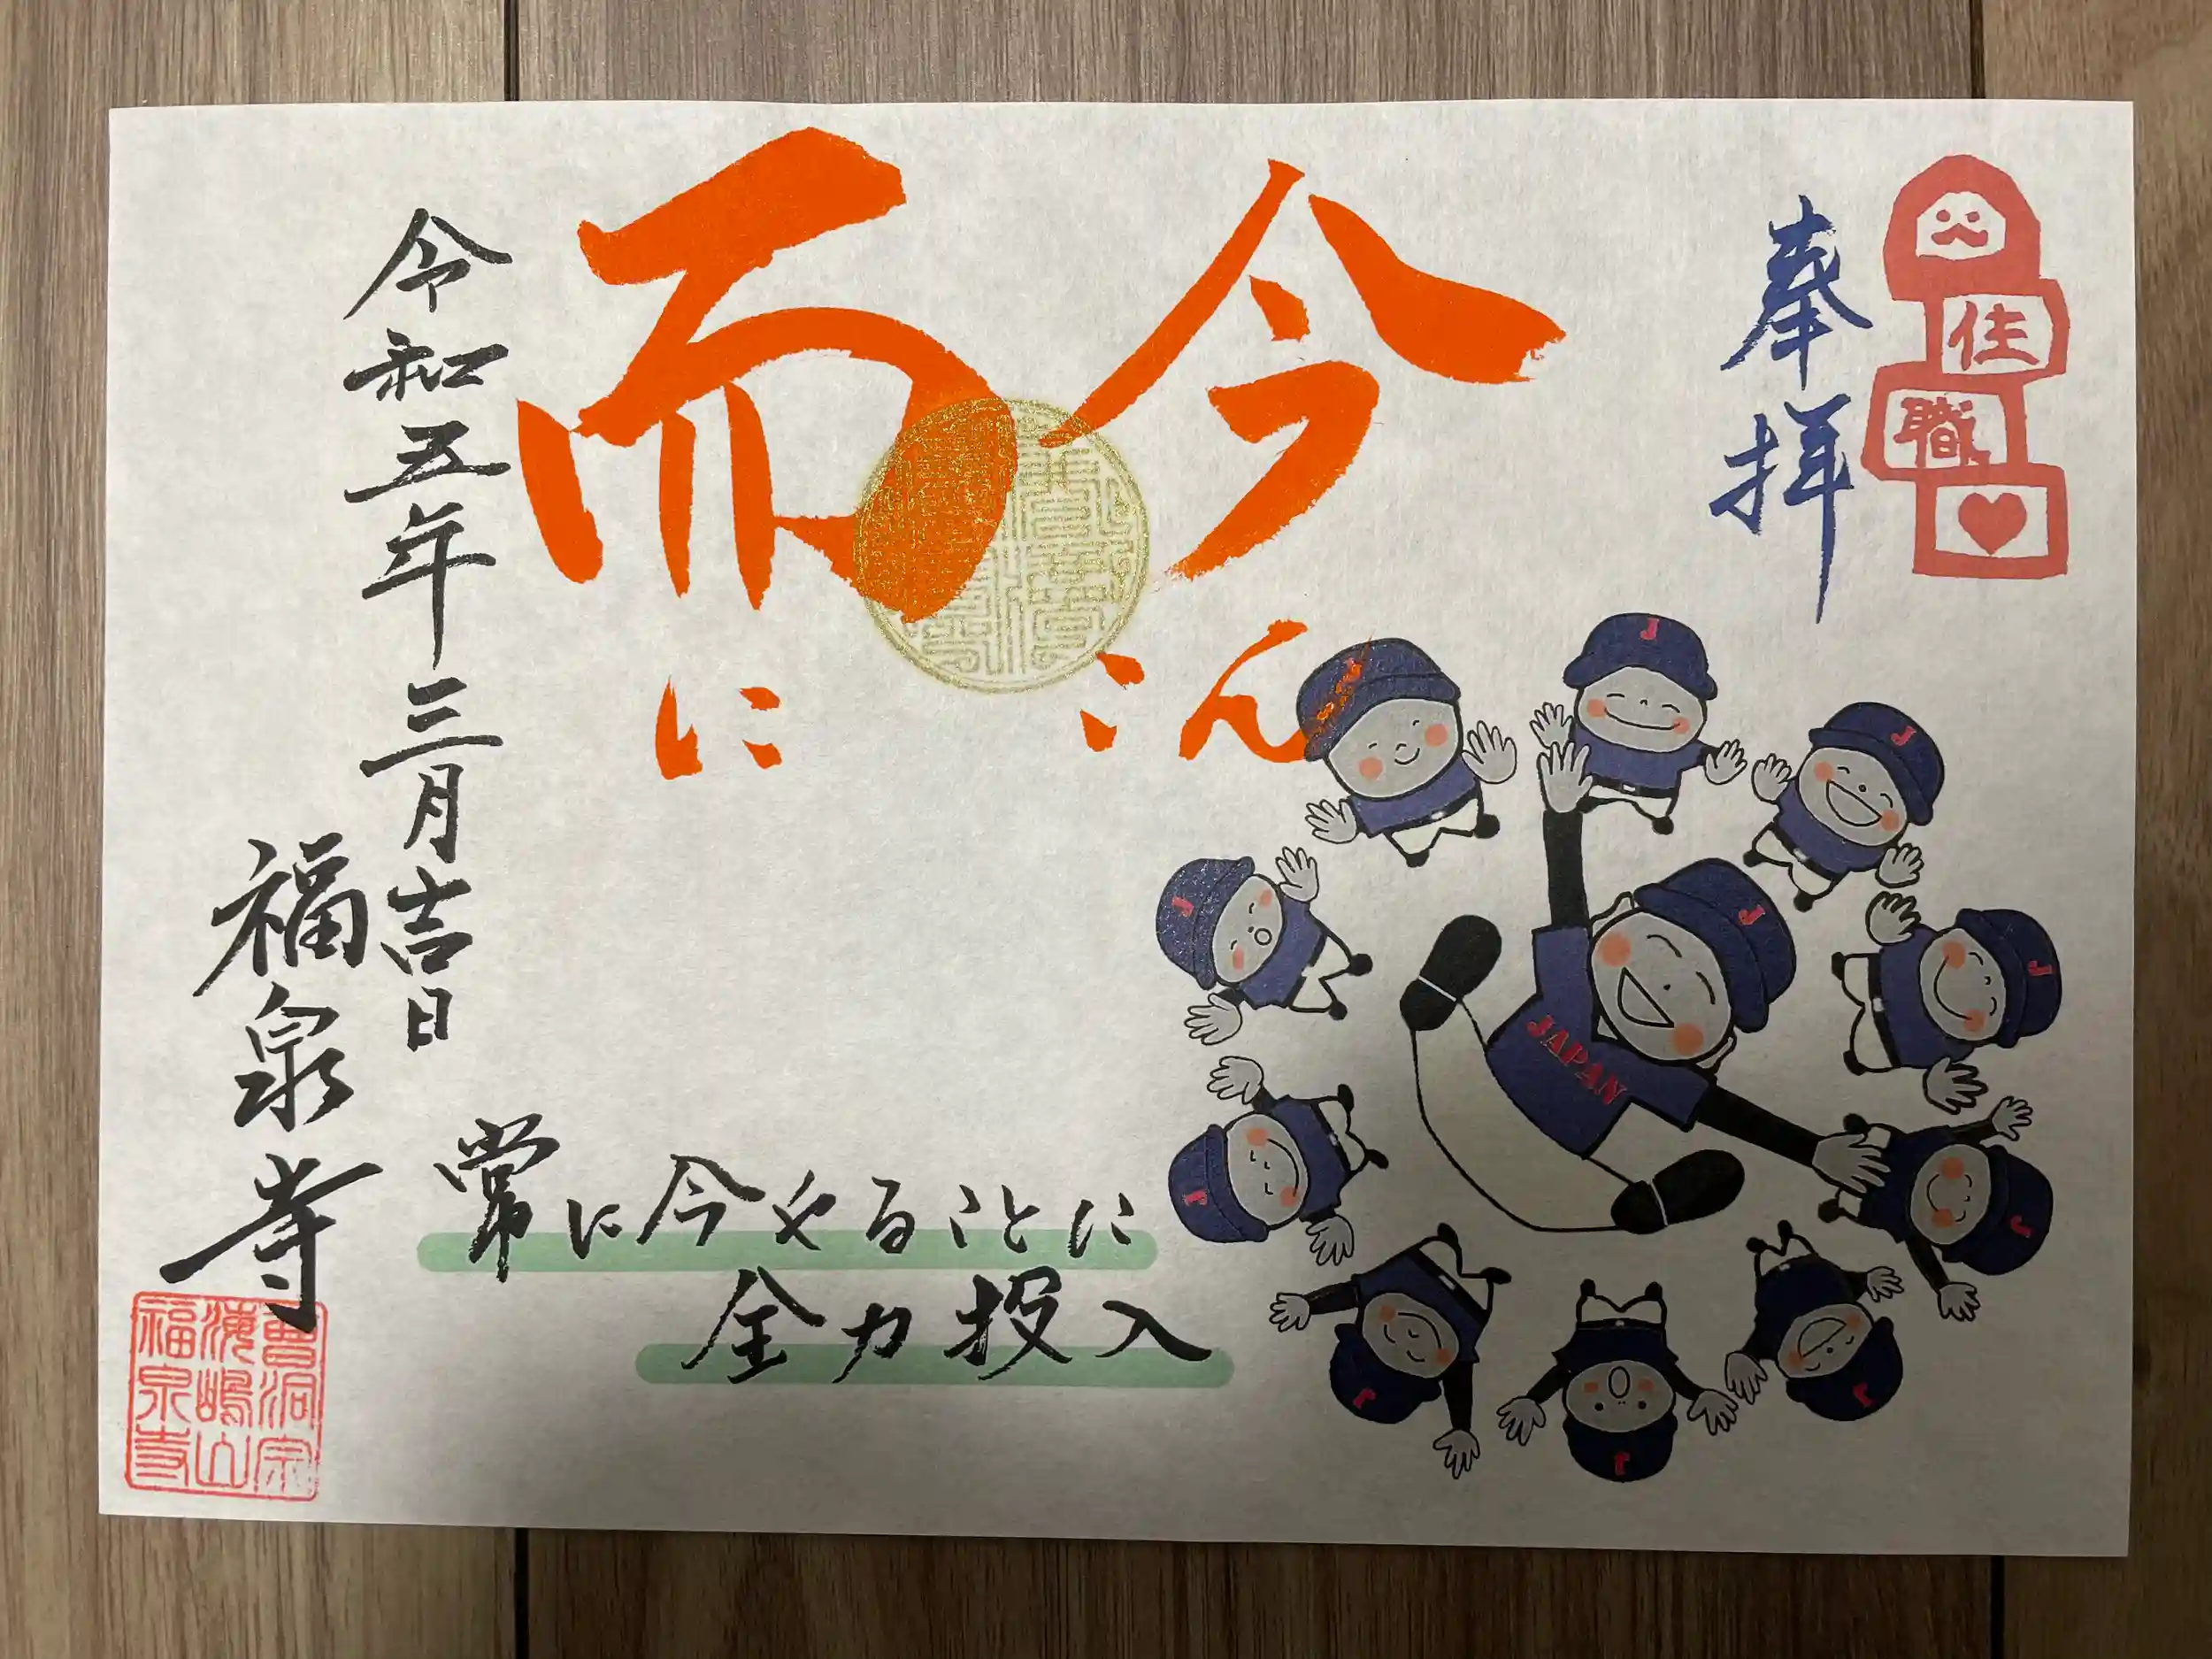 住職
奉拝
今而
こんに
常に今やることに
全力投入
令和五年三月吉日
福泉寺
曹洞宗
海嶋山
福泉寺
J
J
J
J
J
J
J
J
J
J
J
JAPAN